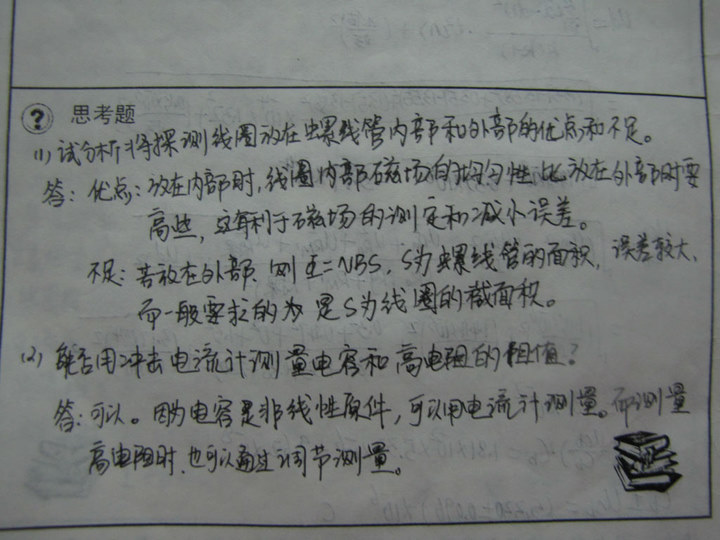 ? 思考题
(1) 试分析将探测线圈放在螺线管内部和外部的优点和不足。
答: 优点: 放在内部时, 线圈内部磁场的均匀性比放在外部时要
高些, 这有利于磁场的测定和减小误差。
不足: 若放在外部, 则 Φ=NBS, S为螺线管的面积, 误差较大,
而一般要求的为是S为线圈的截面积。
(2) 能否用冲击电流计测量电容和高电阻的阻值?
答: 可以。因为电容是非线性原件, 可以用电流计测量。而测量
高电阻时, 也可以通过调节测量。